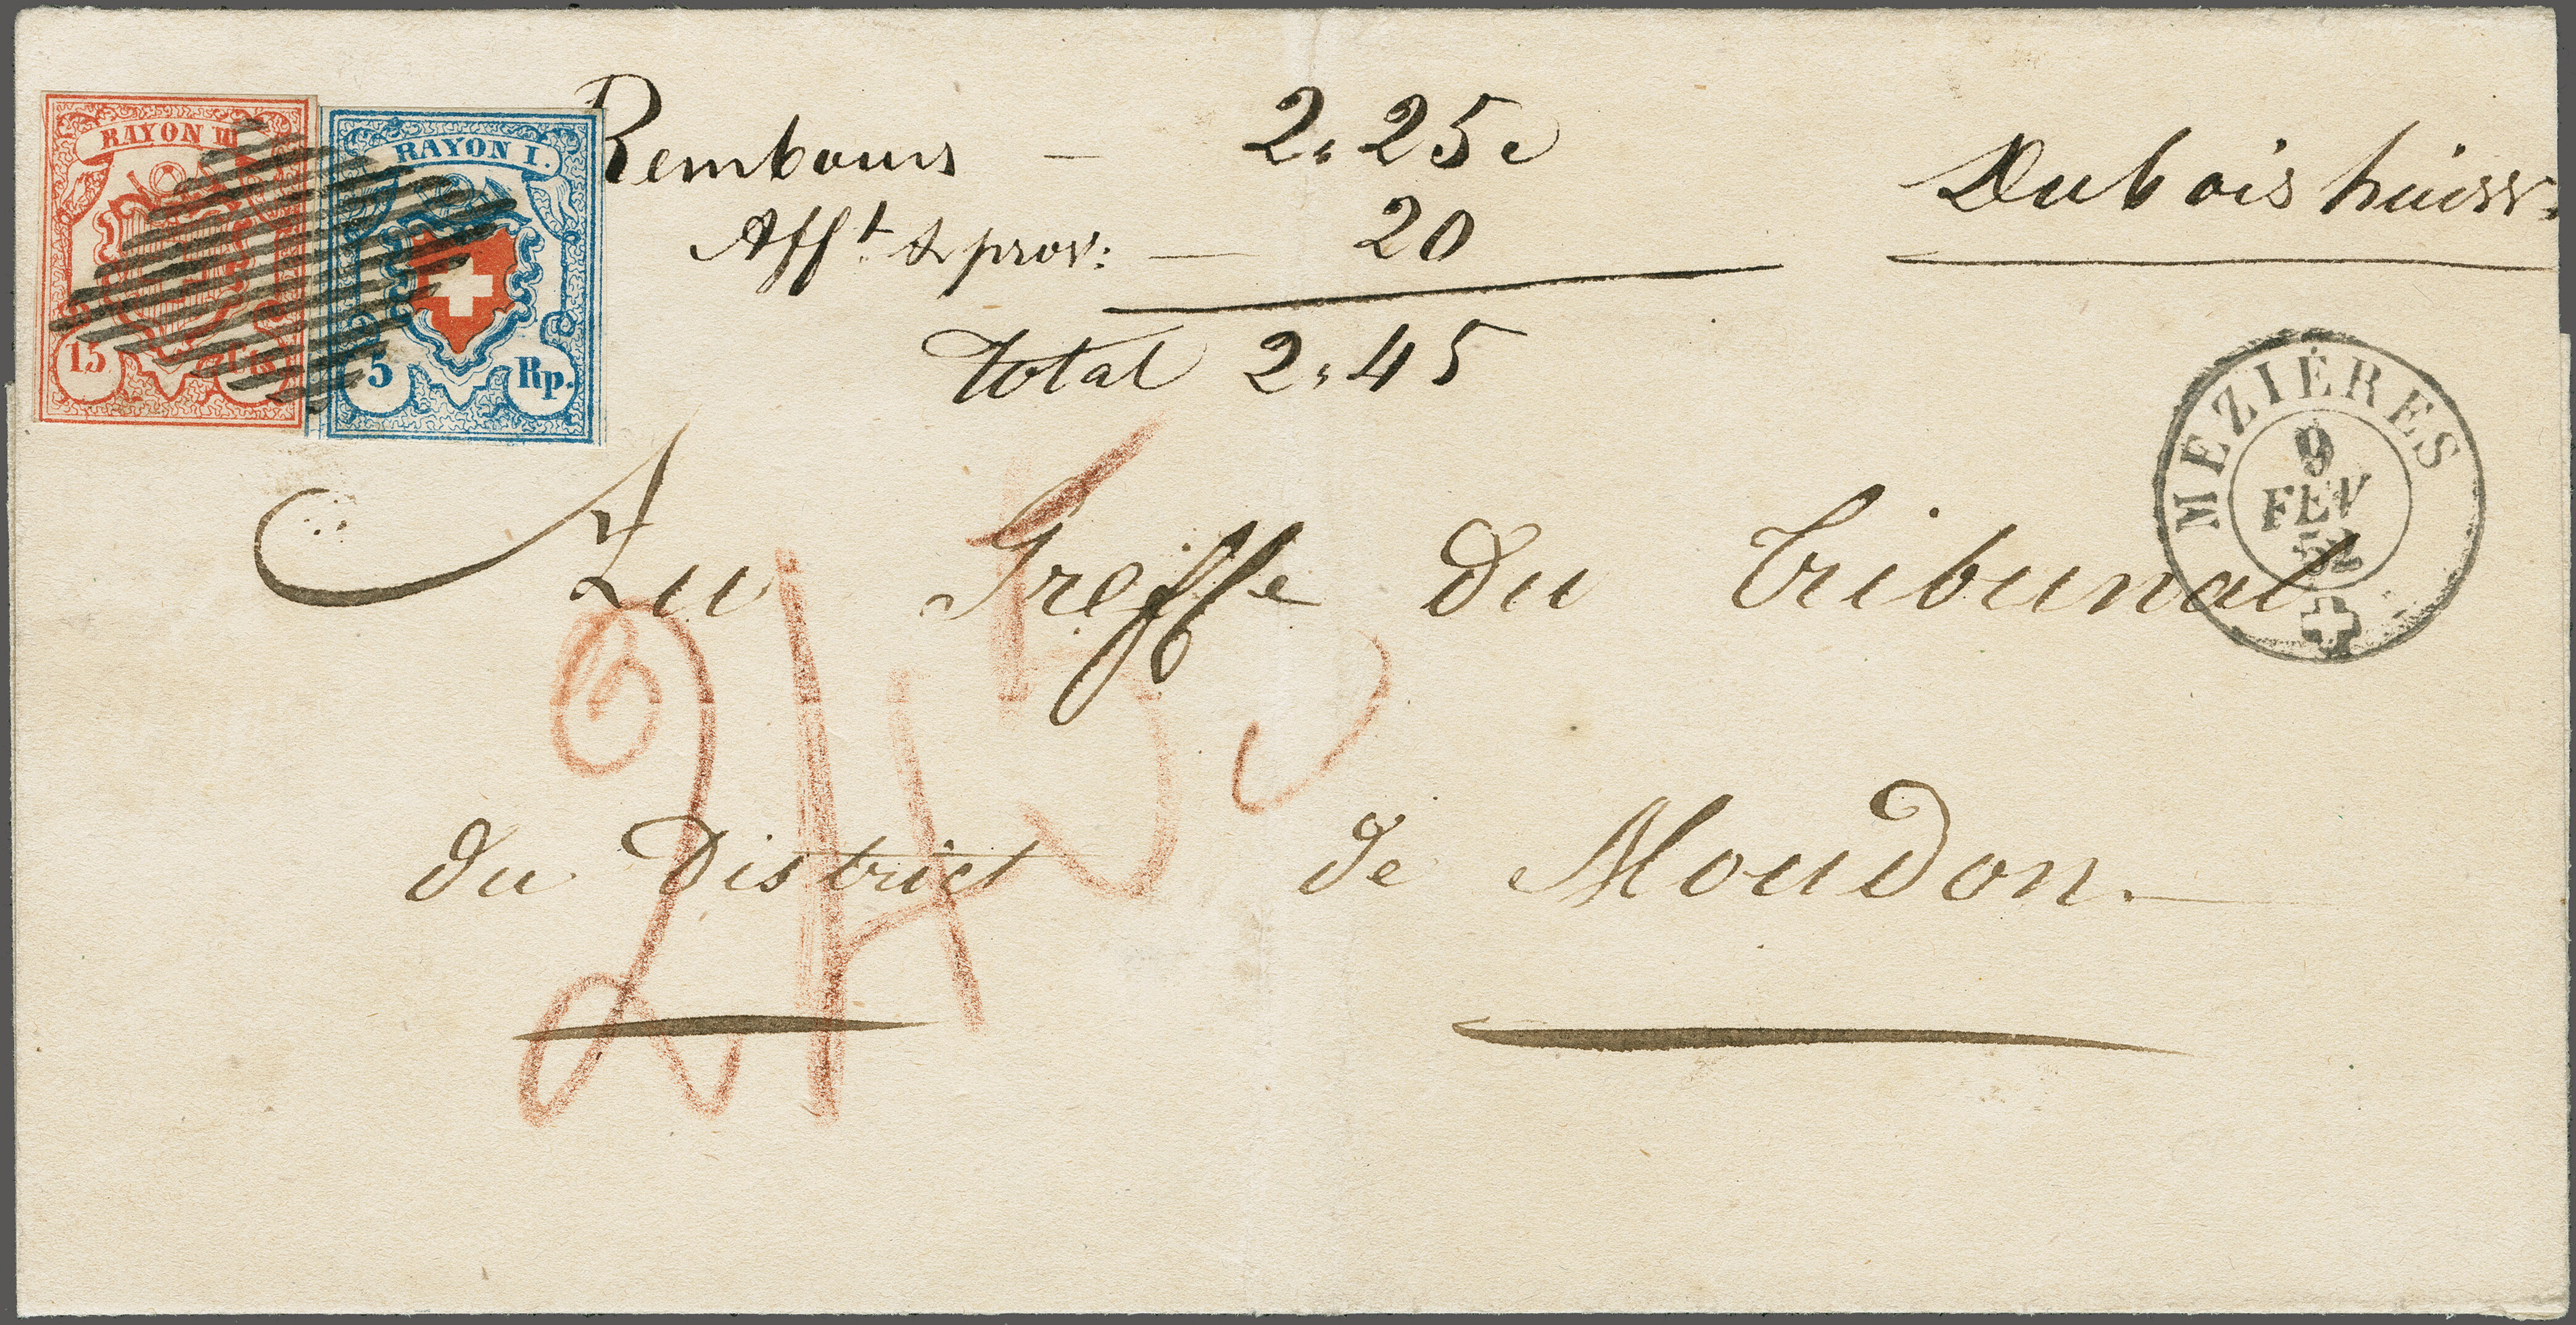 RAYON III
15 Cts.
RAYON I.
5 Rp.
Rembours — 2.25c
Afft. & prov: — 20
total 2.45
Dubois huiss.
MEZIÉRES
9
FEV
52
Au Greffe du Tribunal
du District de Moudon.
245